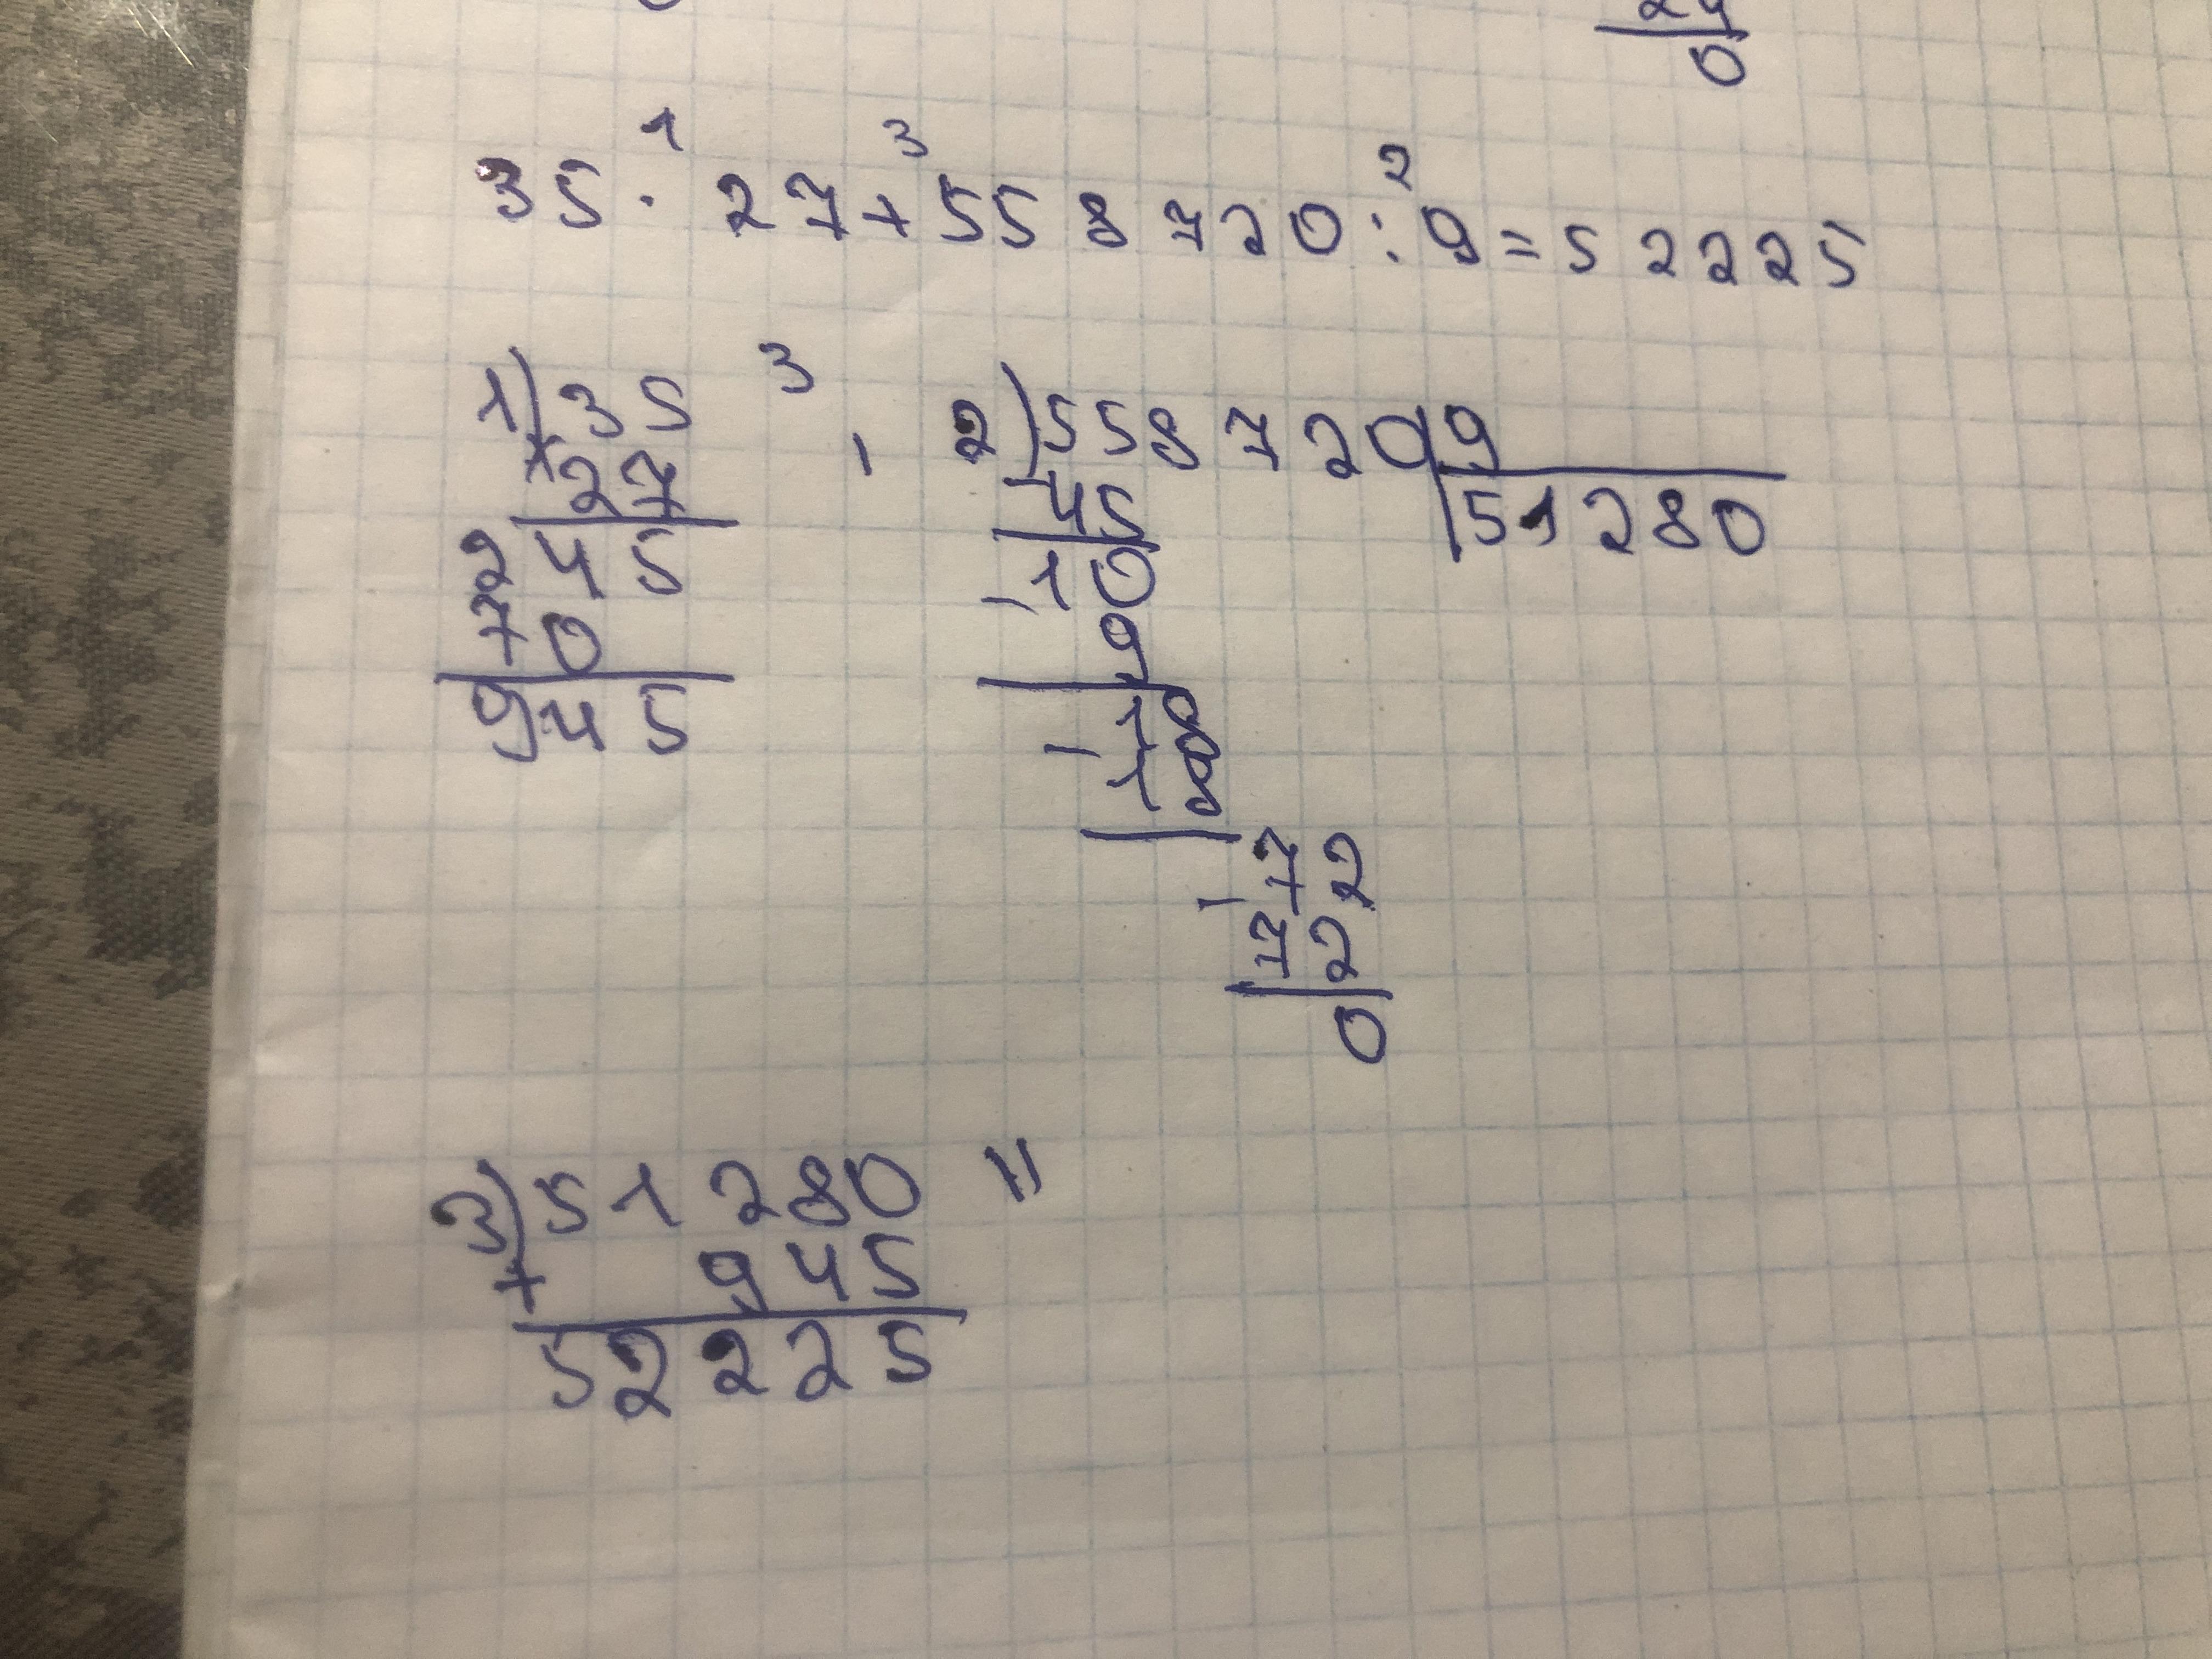 24
0
1 3 2
35 · 27 + 558720 : 9 = 52225
3
1) 35
× 27
245
70
945
2) 558720 | 9
- 45 51280
- 10
9
- 18
18
- 72
72
0
3) 51280
+ 945
52225